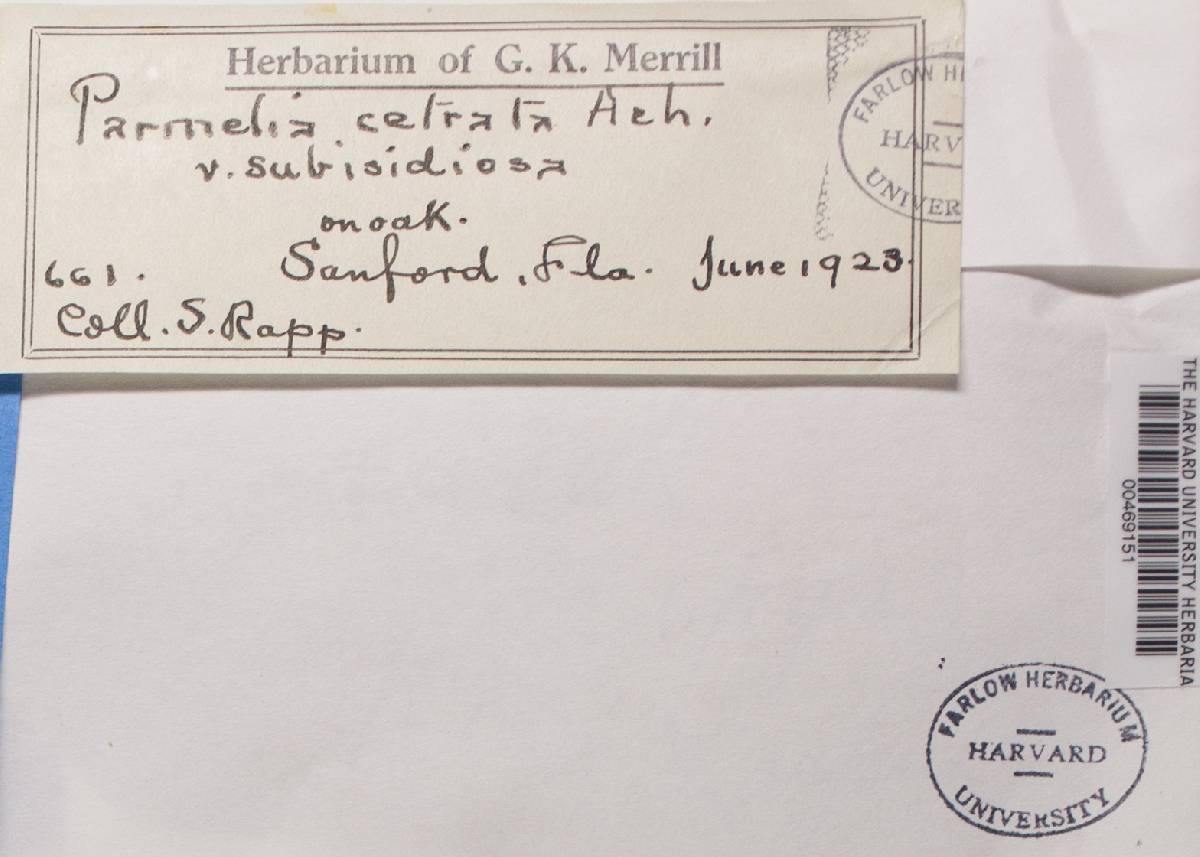 Herbarium of G. K. Merrill
Parmelia cetrata Ach.
v. subisidiosa
on oak.
661. Sanford, Fla. June 1923.
Coll. S. Rapp.
FARLOW H
HARV
UNIVER
THE HARVARD UNIVERSITY HERBARIA
00469151
FARLOW HERBARIUM
HARVARD
UNIVERSITY